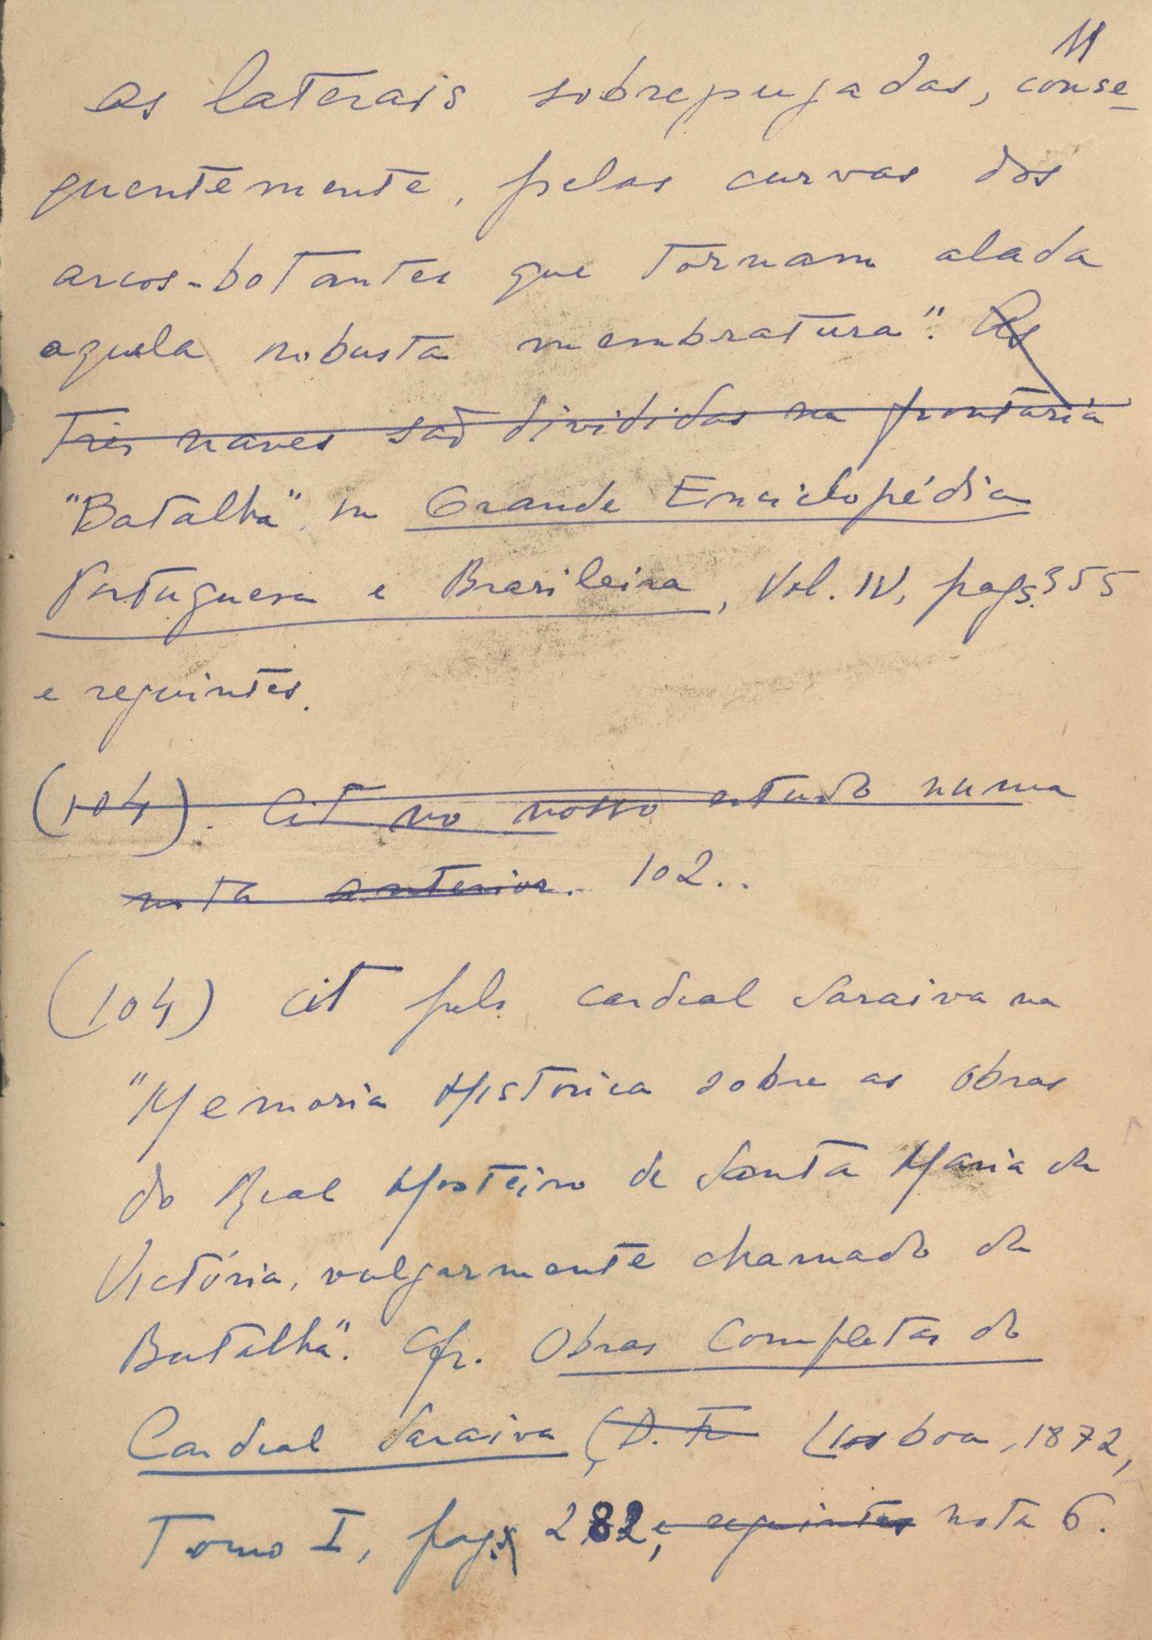 11
as laterais sobrepujadas, conse-
quentemente, pelas curvas dos
arcos-botantes que tornam alada
aquela robusta membratura". As
três naves são divididas na frontaria
"Batalha", in Grande Enciclopédia
Portuguesa e Brasileira, Vol. IV, pags. 355
e seguintes.
(104). Cit no nosso estudo numa
nota anterior. 102..
(104) Cit pelo cardeal Saraiva na
"Memoria Historica sobre as obras
do Real Mosteiro de Santa Maria da
Victória, vulgarmente chamado da
Batalha". Cfr. Obras Completas do
Cardeal Saraiva (D. Fr Lisboa, 1872,
Tomo I, pag. 282, e seguintes nota 6.